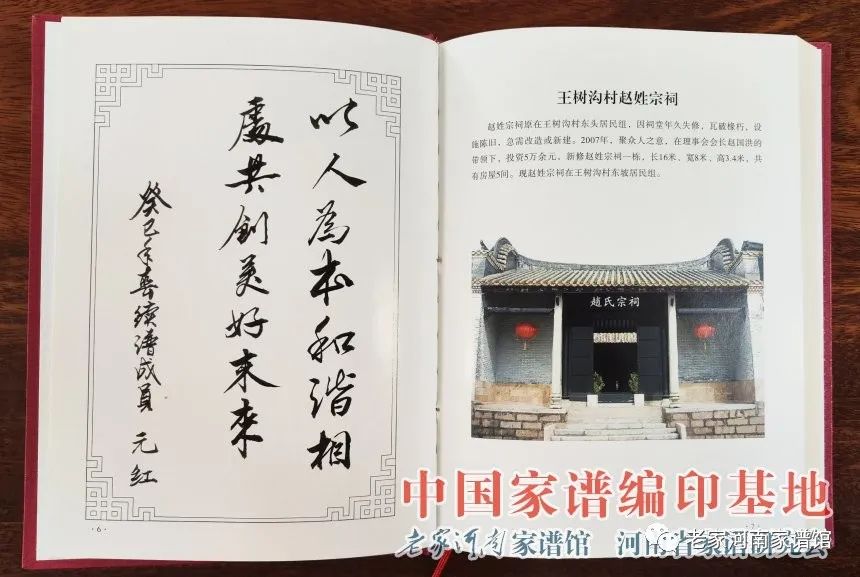 以人为本和谐相
處共創美好未來
癸巳年春续谱成員 元红
·6·
王树沟村赵姓宗祠
赵姓宗祠原在王树沟村东头居民组,因祠堂年久失修,瓦破椽朽,设
施陈旧,急需改造或新建。2007年,聚众人之意,在理事会会长赵国洪的
带领下,投资5万余元,新修赵姓宗祠一栋,长16米、宽8米、高3.4米,共
有房屋5间。现赵姓宗祠在王树沟村东坡居民组。
趙氏宗祠
·7·
中国家谱编印基地
老家河南家谱馆 河南省家谱研究会
老家河南家谱馆